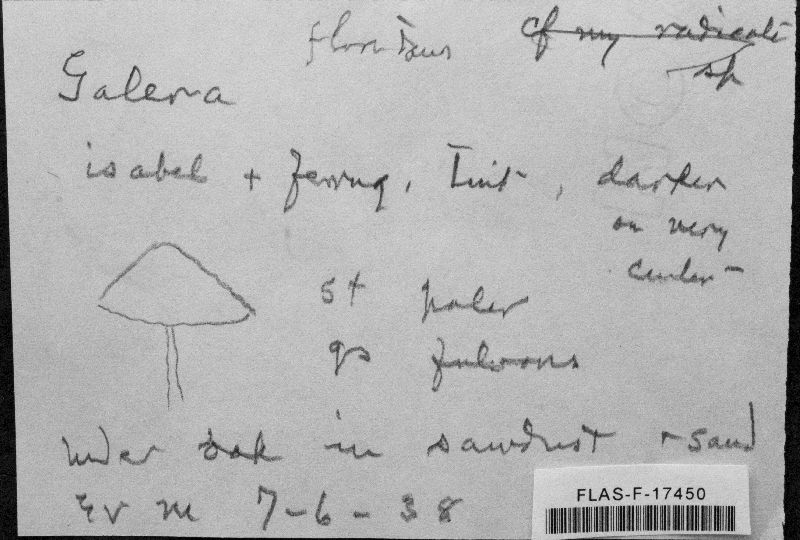 cf my radicati
sp
Galera
isabel + ferrug. tint, darker
on very
center
st paler
gs fulvous
under oak in sawdust + sand
7-6-38
FLAS-F-17450